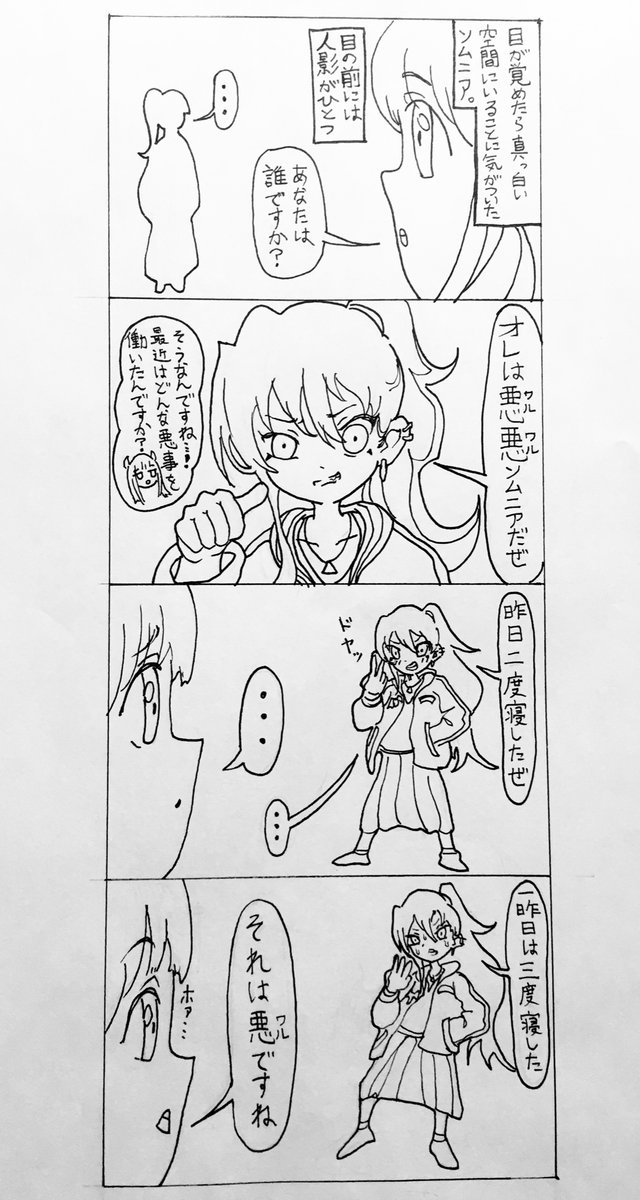 目が覚めたら真っ白い
空間にいることに気がついた
ソムニア。
目の前には
人影がひとつ
・・・
あなたは
誰ですか?
オレは悪悪ソムニアだぜ
ワル
ワル
そうなんですね…!
最近はどんな悪事を
働いたんですか?
昨日二度寝したぜ
ドヤッ
・・・
・・・
一昨日は三度寝した
ホァ…
それは悪ですね
ワル